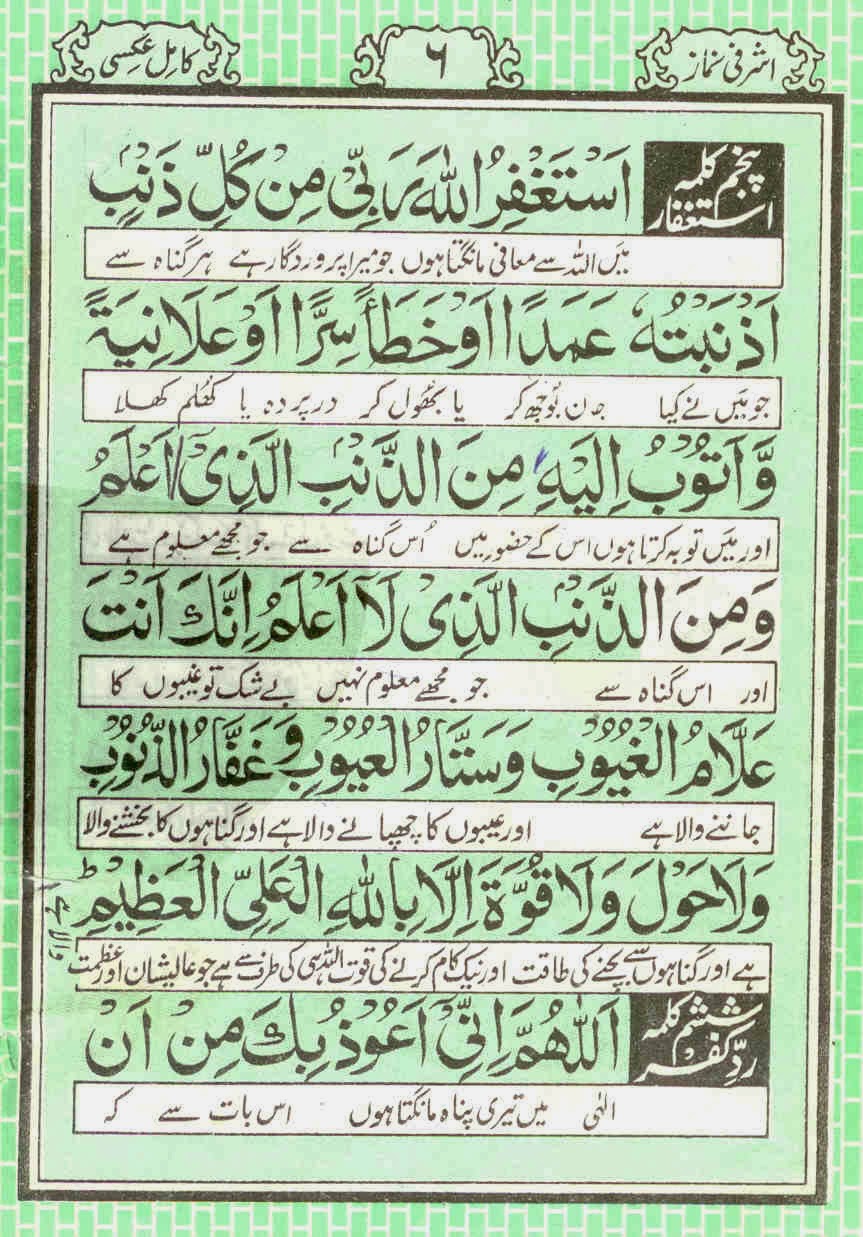 اشرفی نماز
۶
کامل عکسی
پنجم کلمہ استغفار
اَسْتَغْفِرُ اللّٰهَ رَبِّیْ مِنْ كُلِّ ذَنْبٍ
میَں اللہ سے معافی مانگتا ہوں جو میرا پروردگار ہے ہر گناہ سے
اَذْنَبْتُهٗ عَمَدًا اَوْ خَطَأً سِرًّا اَوْ عَلَانِیَةً
جو میَں نے کیا جان بُوجھ کر یا بھُول کر در پردہ یا کھُلم کھلا
وَّاَتُوْبُ اِلَیْهِ مِنَ الذَّنْبِ الَّذِیْ اَعْلَمُ
اور میَں توبہ کرتا ہوں اس کے حضور میں اُس گناہ سے جو مجھے معلوم ہے
وَمِنَ الذَّنْبِ الَّذِیْ لَآ اَعْلَمُ اِنَّكَ اَنْتَ
اور اس گناہ سے جو مجھے معلوم نہیں بے شک تو غیبوں کا
عَلَّامُ الْغُیُوْبِ وَسَتَّارُ الْعُیُوْبِ وَ غَفَّارُ الذُّنُوْبِ
جاننے والا ہے اور عیبوں کا چھپانے والا ہے اور گناہوں کا بخشنے والا
وَلَا حَوْلَ وَلَا قُوَّةَ اِلَّا بِاللّٰهِ الْعَلِیِّ الْعَظِیْمِ ؕ
ہے اور گناہوں سے بچنے کی طاقت اور نیک کام کرنے کی قوت اللہ ہی کی طرف سے ہے جو عالیشان اور عظمت
والا ہے
ششم کلمہ ردِّ کفر
اَللّٰهُمَّ اِنِّیْٓ اَعُوْذُ بِكَ مِنْ اَنْ
الٰہی میں تیری پناہ مانگتا ہوں اس بات سے کہ